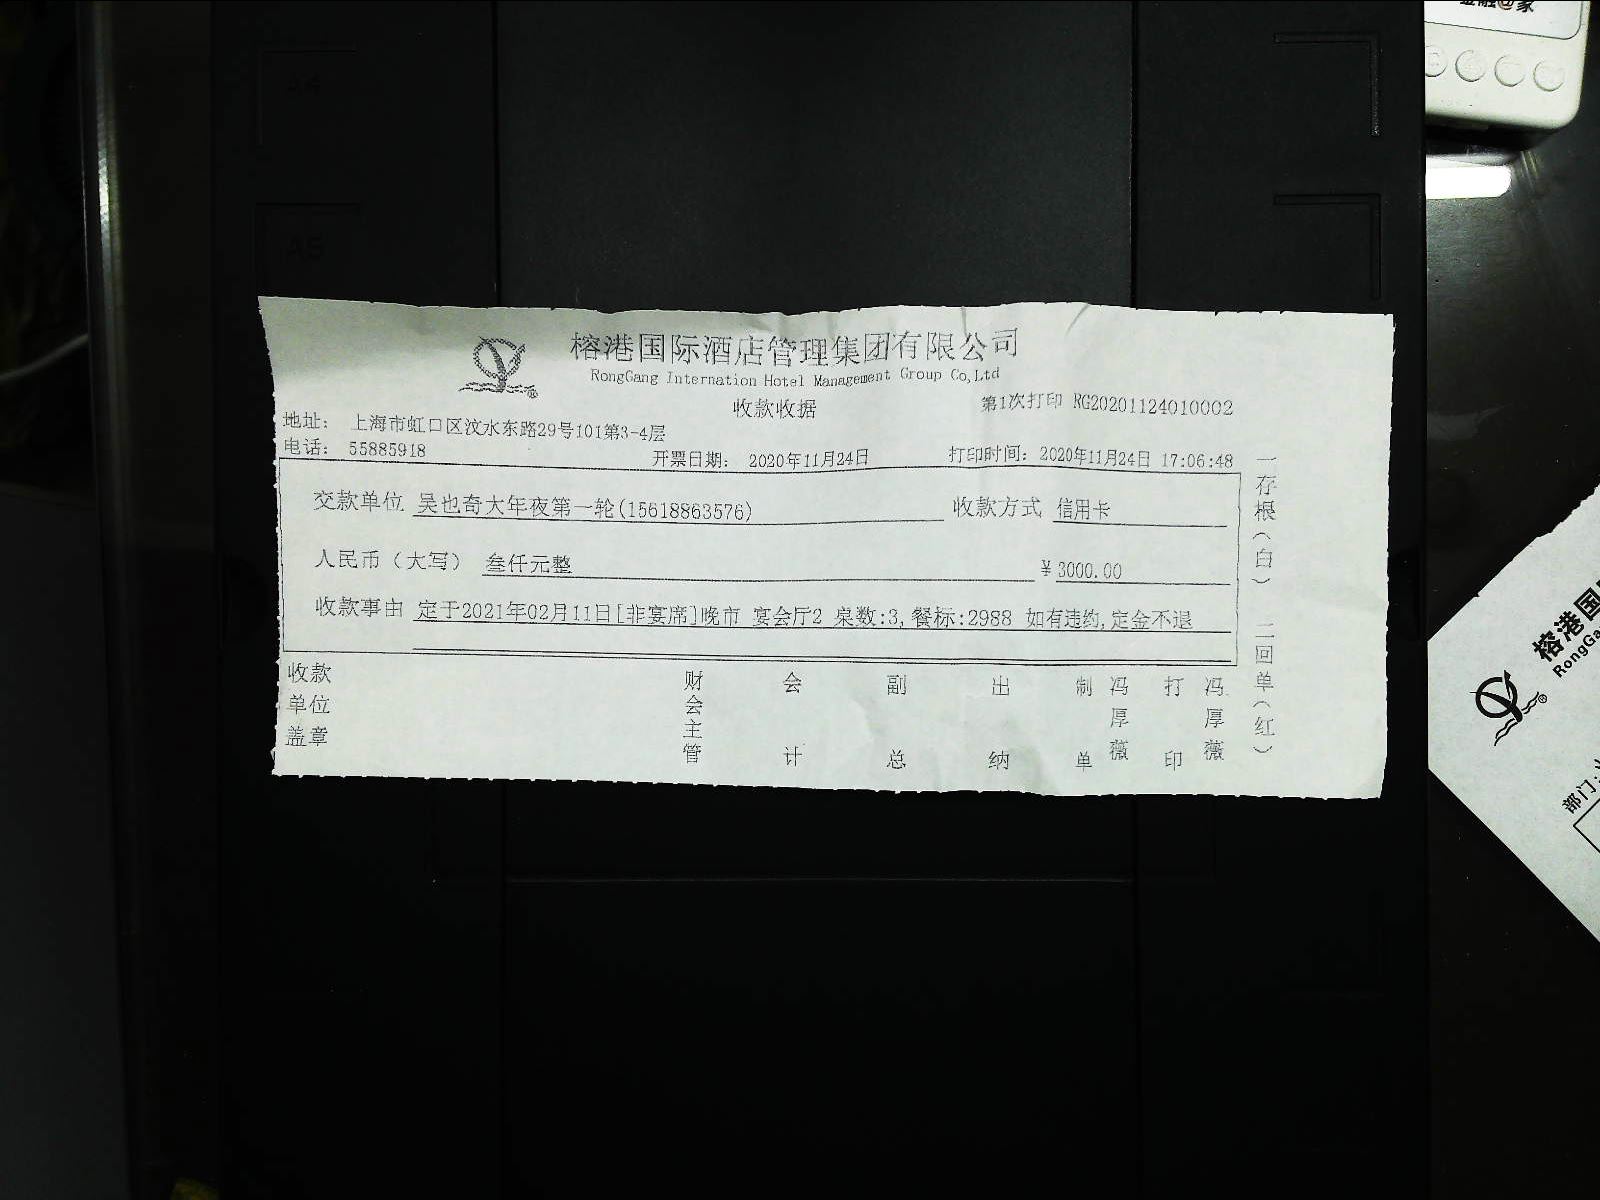 榕港国际酒店管理集团有限公司
RongGang Internation Hotel Management Group Co,Ltd
收款收据
第1次打印 RG20201124010002
地址： 上海市虹口区汶水东路29号101第3-4层
电话： 55885918
开票日期： 2020年11月24日
打印时间：2020年11月24日 17:06:48
交款单位 吴也奇大年夜第一轮(15618863576) 收款方式 信用卡
人民币（大写） 叁仟元整 ￥3000.00
收款事由 定于2021年02月11日[非宴席]晚市 宴会厅2 桌数:3,餐标:2988 如有违约,定金不退
收款单位盖章
财会主管
会计
副总
出纳
制单
冯厚薇
打印
冯厚薇
一存根（白） 二回单（红）
A5
榕港国
RongGa
部门: